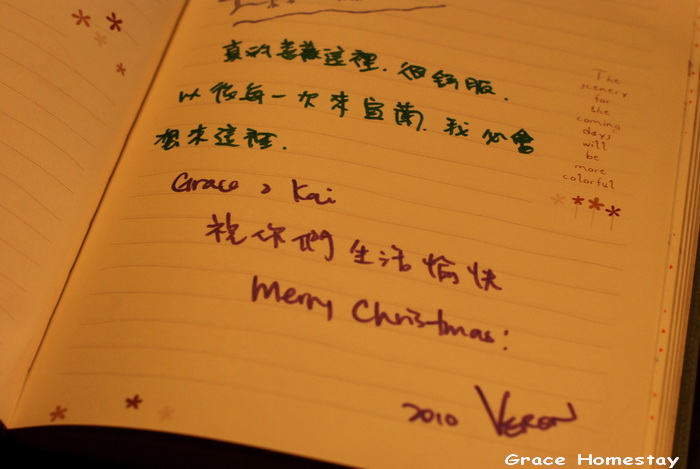 真的喜歡這裡.很舒服.
以後每一次來宜蘭.我必會
想來這裡.
Grace, Kai
祝你們生活愉快
Merry Christmas:
2010 VERON
The
scenery
for
the
coming
days
will
be
more
colorful
Grace Homestay